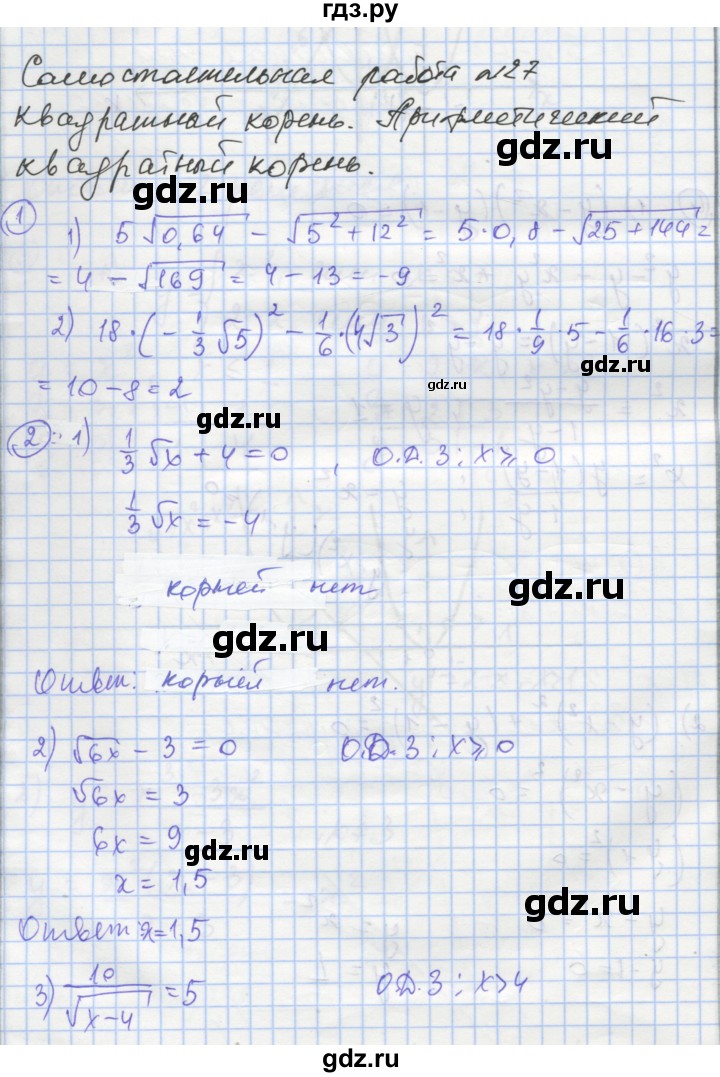 гдз.ру
Самостоятельная работа №27
Квадратный корень. Арифметический
квадратный корень.
gdz.ru
gdz.ru
1
1) 5√0,64 - √(5² + 12²) = 5·0,8 - √(25+144) =
= 4 - √169 = 4 - 13 = -9
2) 18·(-1/3√5)² - 1/6·(4√3)² = 18·1/9·5 - 1/6·16·3 =
= 10 - 8 = 2
gdz.ru
gdz.ru
2: 1) 1/3√x + 4 = 0, О.Д.З: x ≥ 0
gdz.ru
1/3√x = -4
корней нет
gdz.ru
gdz.ru
Ответ: корней нет.
2) √6x - 3 = 0 О.Д.З: x ≥ 0
√6x = 3
gdz.ru
6x = 9
gdz.ru
x = 1,5
gdz.ru
Ответ: x = 1,5
3) 10/√(x-4) = 5 О.Д.З: x > 4
gdz.ru
gdz.ru